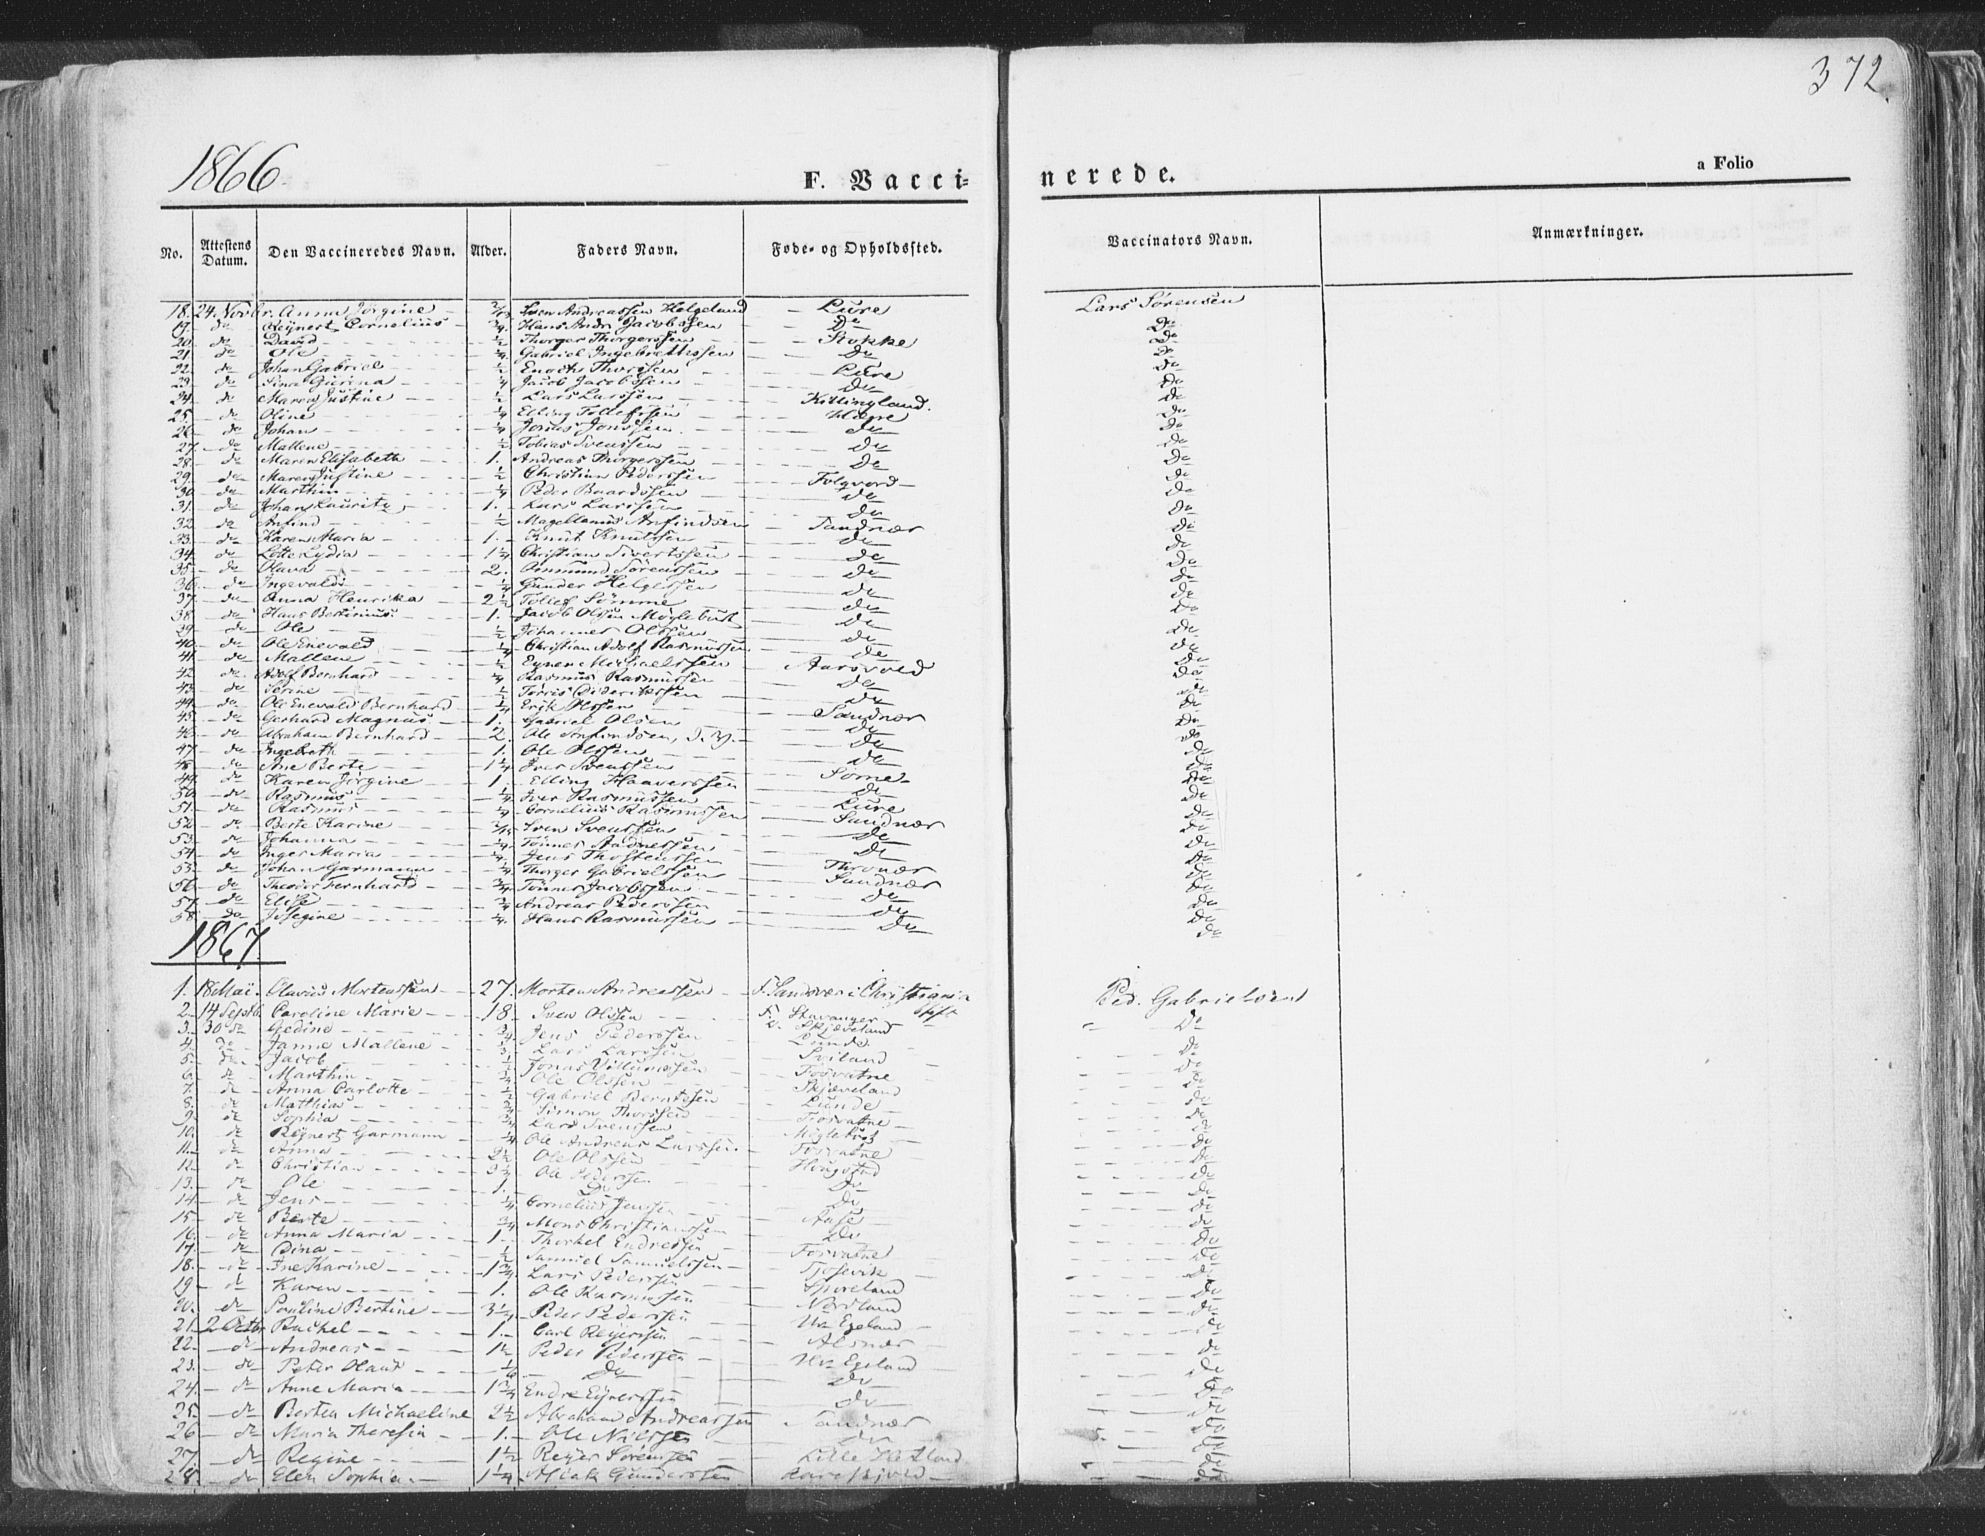 372.
1866
F. Vacci-
nerede.
a Folio
No. Attestens Datum. Den Vaccineredes Navn. Alder. Faders Navn. Føde- og Opholdssted. Vaccinators Navn. Anmærkninger.
18. 24. Novbr. Anna Jørgine Sven Andreassen Helgeland Lure Lars Sørensen
19. do Reÿnert Cornelius ¾ Hans Andr. Jacobssen Do Do
20. do David ½ Thorger Thorgerssen Stokke Do
21 do Ole ¼ Gabriel Ingebrethssen Do Do
22. do Johan Gabriel ½ Enoch Thorssen Lure Do
23. do Sina Gurina Jacob Jacobssen Do Do
24. do Maren Justine ½ Lars Larssen Kittingland. Do
25. do Oline ¼ Elling Tollefssen Do
26 do Johan ¼ Jonas Jonssen do Do
27. do Mallene ½ Tobias Svenssen Do Do
28. do Maren Elisabeth 1. Andreas Thorgerssen Do Do
29. do Maren Justine ½ Christian Pederssen Folqvord Do
30 do Marthin ¼ Peder Baardssen Do Do
31. do Johan Lauritz 1. Lars Larssen Do Do
32 do Anfind ½ Magellanus Anfindsen Sandnæs Do
33. do Karen Maria 1. Knut Knutssen Do Do
34. do Lotte Lydia 1¼ Christian Sivertssen Do Do
35. do Olava 2. Ommund Sørenssen Do Do
36. do Ingevald ¼ Gunder Helgessen Do Do
37 do Anna Henrika 2½ Tollef Sømme do Do
38. do Hans Bertinius 1. Jacob Olsen Møglebust Do Do
39 do Ole ½ Johannes Olssen Do Do
40. do Ole Enevald ¼ Christian Adolf Rasmussen Do Do
41. do Mallene ½ Eynen Michaelssen Aarsvold Do
42 do Adolf Bernhard ¼ Rasmus Rasmussen Do Do
43. do Serine ½ Torris Dideriksen Do Do
44. do Ole Enevald Bernhard ¼ Erik Olssen Sandnæs Do
45. do Gerhard Magnus 1. Gabriel Olsen Do Do
46. do Abraham Bernhard 2. Ole Anfindsen, d. Y. Do Do
47 do Ingeboth 1. Ole Olssen Do Do
48. do Ane Berte 1¼ Iver Svenssen Do
49. do Karen Jørgine 1 Elling Haaverssen Sørne Do
50. do Rasmus ¼ Iver Rasmussen Do Do
51. do Rasmus ¼ Cornelius Rasmussen Lure Do
52 do Berte Karine Sven Svenssen Sandnæs Do
53. do Johanna ¼ Tønnes Aadnessen Do Do
54 do Inger Maria ¼ Jens Thostenssen Do Do
55. do Johan Garmann ¼ Thorger Gabrielssen Do
56 do Theodor Bernhard ¾ Tønnes Jacobssen Sandnæs Do
57. do Elise ¾ Andreas Pederssen Do Do
58. do Josegine ¼ Hans Rasmussen Do Do
1867.
1. 18 Mai. Olavus Mortenssen 27. Morten Andreassen F. Sandsvær i Christiania Stift Ped. Gabrielsen
2. 14 Septb. Caroline Marie 18. Sven Olssen F. Stavanger Do
3. 30 do Gedine ¾ Jens Pederssen Skjæveland Do
4. do Janne Mallene Lars Larssen Lunde Do
5. do Jacob ½ Jonas Villumssen Sviland Do
6. do Marthin ¼ Ole Olssen Fosvatne Do
7. do Anna Carlotte ½ Gabriel Berntssen Skjæveland Do
8. do Matthias Simon Thorssen Lunde Do
9. do Sophia ¾ Lars Svenssen Fosvatne Do
10. do Reÿnert Garmann ¼ Ole Andreas Larssen Møglebust Do
11. do Anna 2½ Ole Olssen Fosvatne Do
12. do Christian Ole Pederssen Hougstad Do
13. do Ole 1. Do Do Do
14 do Jens ¼ Cornelius Jenssen Do Do
15 do Berte ¾ Mons Christianssen Aase Do
16. do Anna Maria 1. Thorkel Endressen Do Do
17. do Dina ½ Samuel Samuelssen Fosvatne Do
18. do Ine Karine 1¾ Lars Pederssen Tjosevik Do
19 do Karen 1. Ole Rasmussen Do
20. do Pauline Bertine 3¼ Peder Pederssen Nordland Do
21. 2 Octb. Rachel 1. Carl Reÿerssen Ur. Egeland Do
22. do Andreas 1½ Peder Pederssen Alsnæs Do
23. do Peter Olaus Do Egeland Do
24. do Anne Maria 1¾ Endre Eÿnerssen Do Do
25. do Berten Michaeline 2½ Abraham Andreassen Do Do
26 do Maria Theresia 1. Ole Nilssen Sandnæs Do
27. do Regine 1½ Reÿer Sørenssen Lille Hetland Do
28. do Elen Sophia 1¼ Aslak Gunderssen Do